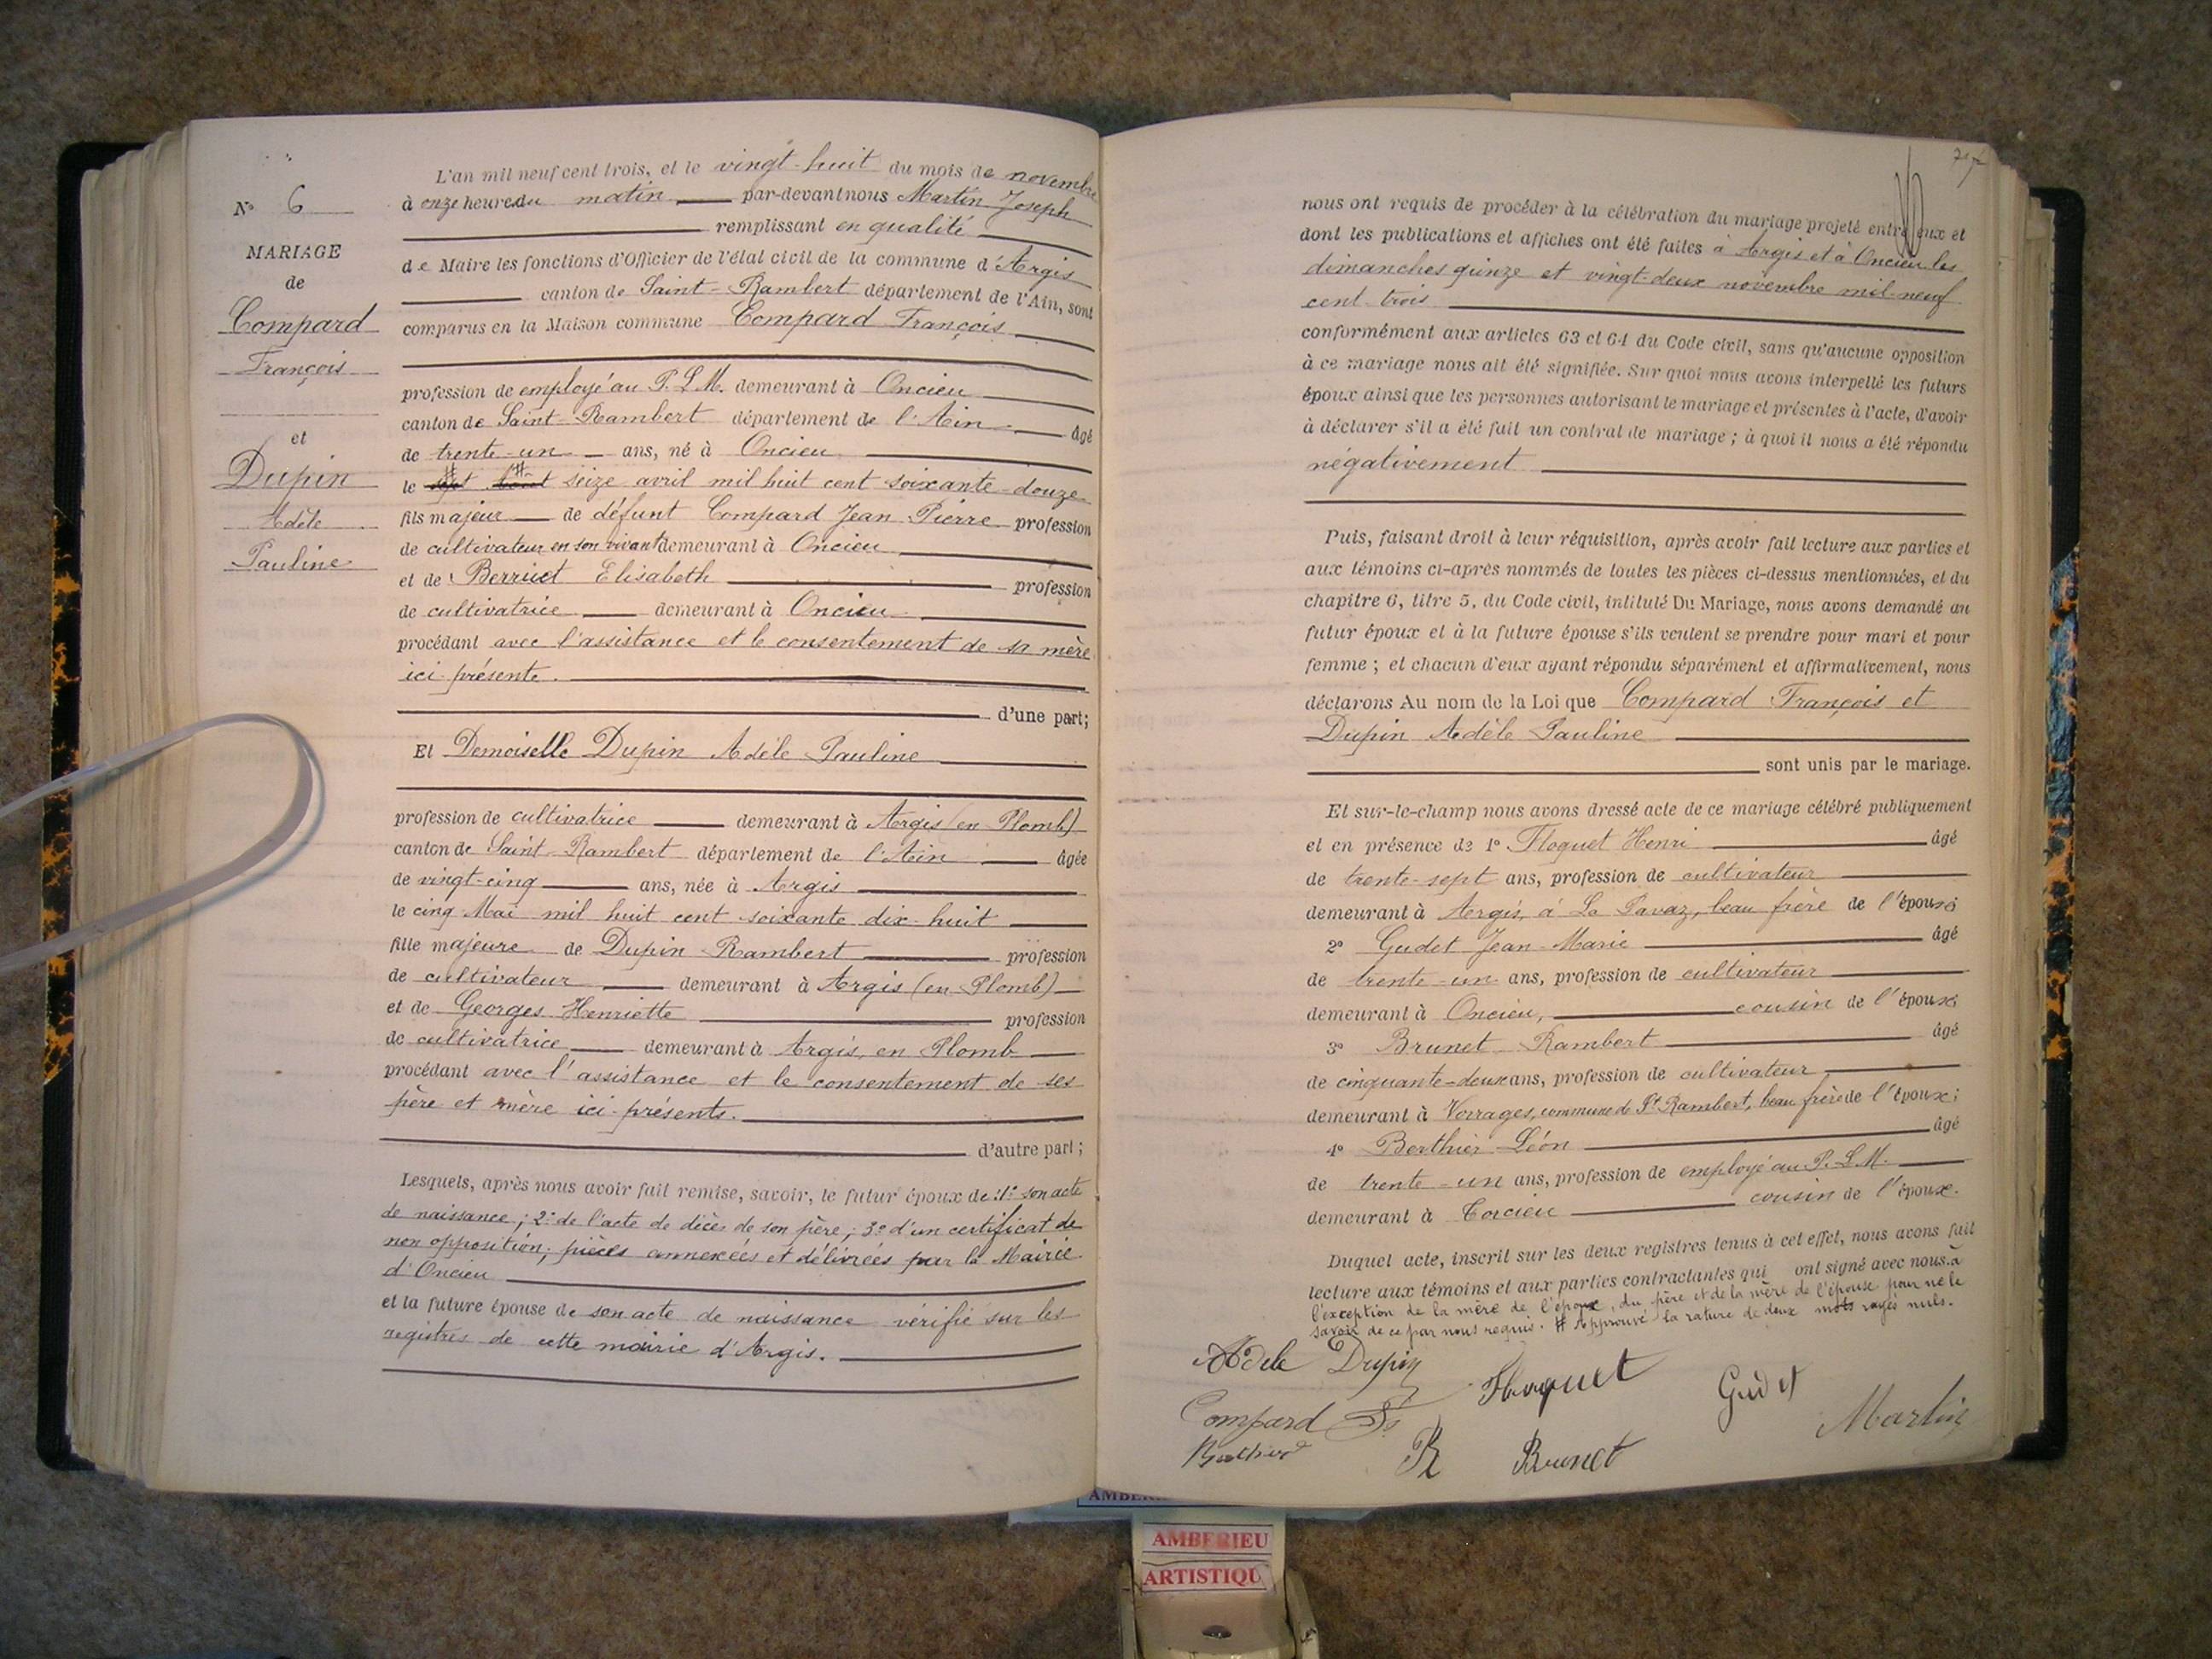 N° 6
MARIAGE
de
Compard
François
et
Dupin
Adèle
Pauline
L'an mil neuf cent trois, et le vingt-huit du mois de novembre
à onze heures du matin par-devant nous Martin Joseph
remplissant en qualité
de Maire les fonctions d'Officier de l'état civil de la commune d'Argis
canton de Saint-Rambert département de l'Ain, sont
comparus en la Maison commune Compard François
profession de employé au P.L.M. demeurant à Oncieu
canton de Saint-Rambert département de l'Ain âgé
de trente-un ans, né à Oncieu
le seize avril mil huit cent soixante-douze
fils majeur de défunt Compard Jean Pierre profession
de cultivateur en son vivant demeurant à Oncieu
et de Berruet Elisabeth profession
de cultivatrice demeurant à Oncieu
procédant avec l'assistance et le consentement de sa mère
ici présente.
d'une part;
Et Demoiselle Dupin Adèle Pauline
profession de cultivatrice demeurant à Argis (en Plomb)
canton de Saint-Rambert département de l'Ain âgée
de vingt-cinq ans, née à Argis
le cinq Mai mil huit cent soixante dix-huit
fille majeure de Dupin Rambert profession
de cultivateur demeurant à Argis (en Plomb)
et de Georges Henriette profession
de cultivatrice demeurant à Argis, en Plomb
procédant avec l'assistance et le consentement de ses
père et mère ici présents.
d'autre part;
Lesquels, après nous avoir fait remise, savoir, le futur époux de: 1° son acte
de naissance; 2° de l'acte de décès de son père; 3° d'un certificat de
non opposition; pièces annexées et délivrées par la Mairie
d'Oncieu
et la future épouse de son acte de naissance vérifié sur les
registres de cette mairie d'Argis.
nous ont requis de procéder à la célébration du mariage projeté entre eux et
dont les publications et affiches ont été faites à Argis et à Oncieu les
dimanches quinze et vingt-deux novembre mil-neuf
cent-trois
conformément aux articles 63 et 64 du Code civil, sans qu'aucune opposition
à ce mariage nous ait été signifiée. Sur quoi nous avons interpellé les futurs
époux ainsi que les personnes autorisant le mariage et présentes à l'acte, d'avoir
à déclarer s'il a été fait un contrat de mariage; à quoi il nous a été répondu
négativement
Puis, faisant droit à leur réquisition, après avoir fait lecture aux parties et
aux témoins ci-après nommés de toutes les pièces ci-dessus mentionnées, et du
chapitre 6, titre 5, du Code civil, intitulé Du Mariage, nous avons demandé au
futur époux et à la future épouse s'ils veulent se prendre pour mari et pour
femme; et chacun d'eux ayant répondu séparément et affirmativement, nous
déclarons Au nom de la Loi que Compard François et
Dupin Adèle Pauline
sont unis par le mariage.
Et sur-le-champ nous avons dressé acte de ce mariage célébré publiquement
et en présence de 1° Floquet Henri âgé
de trente-sept ans, profession de cultivateur
demeurant à Argis, à La Pavaz, beau frère de l'épouse
2° Gudet Jean-Marie âgé
de trente-un ans, profession de cultivateur
demeurant à Oncieu, cousin de l'époux;
3° Brunet Rambert âgé
de cinquante-deux ans, profession de cultivateur
demeurant à Vorrages, commune de St Rambert, beau frère de l'époux;
4° Berthier Léon âgé
de trente-un ans, profession de employé au P.L.M.
demeurant à Torcieu cousin de l'époux.
Duquel acte, inscrit sur les deux registres tenus à cet effet, nous avons fait
lecture aux témoins et aux parties contractantes qui ont signé avec nous à
l'exception de la mère de l'époux, du père et de la mère de l'épouse pour ne le
savoir de ce par nous requis. # Approuvé la rature de deux mots rayés nuls.
Adele Dupin
Floquet
Gudet
Compard
Martin
Berthier
R Brunet
AMBERIEU
ARTISTIQU